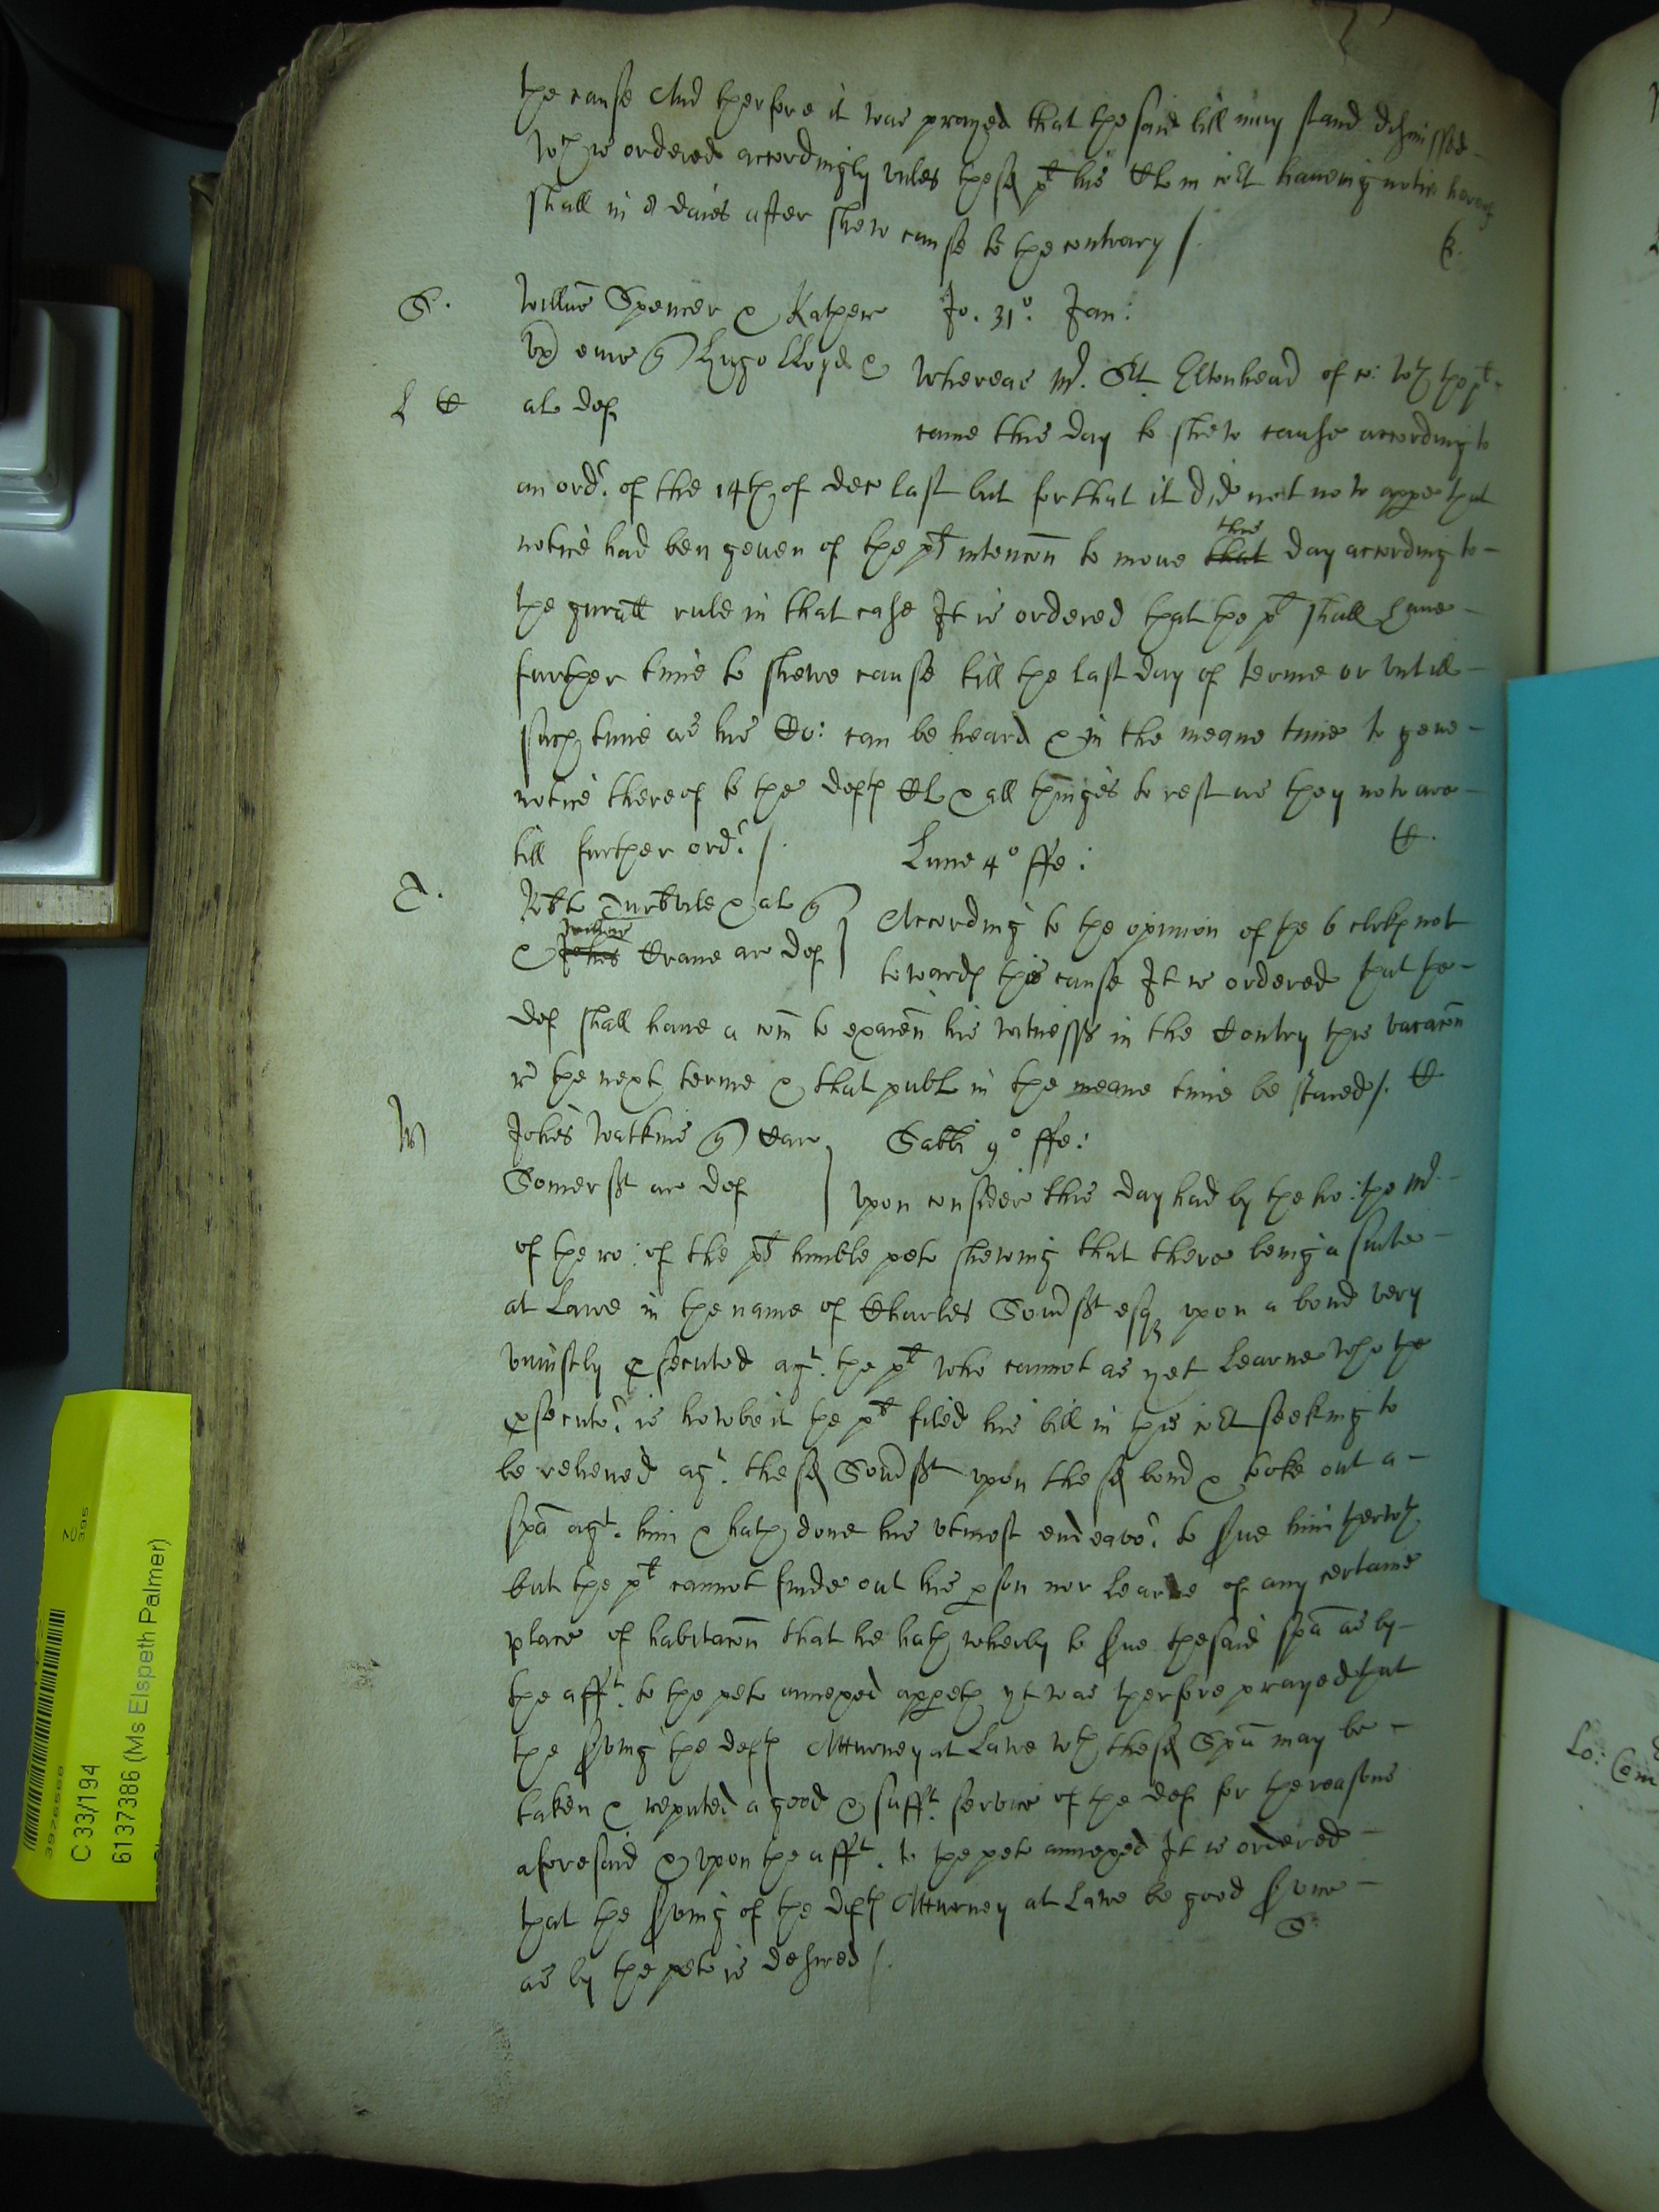 the cause And therfore it was prayed that the said bill may stand dismissed
wch is ordered accordingly vnles the sd plt his Clo in cort haveing notice hereof
shall in 8 daies after shew cause to the contrary /.
R.
S. Willms Spencer & Kather Jo. 31o. Jan:
vx eius q Hugo Lloyd & Whereas Mr. St Eltonhead of co: wth the plt
L C al def came this day to shew cause according to
an ordr. of the 14th of dec last but for that it did not now appe that
notice had ben geuen of the plt intencon to moue that this day according to
the gnrall rule in that case It is ordered that the plt shall haue
further time to shewe cause till the last day of terme or vntill
such time as his Co: can be heard & in the meane time to geue
notice thereof to the defts Cl & all thinges to rest as they now are
till further ordr /. Lune 4o ffe: C.
T. Robt Turbvile & al q According to the opinion of the 6 clrks not
& Johes Willm Crane ar def towards this cause It is ordered that the
def shall haue a com to examen his witnesses in the Contry this vacacon
r the next terme & that publ in the meane time be staied /. C
W Johes Watkins q Car Sabbi 9o ffe:
Somerst ar def vpon consider this day had by the ho: the Mr
of the ro: of the plt humble peto shewing that there being a suite
at Lawe in the name of Charles Somst esqr vpon a bond very
vniustly psecuted agt. the plt who cannot as yet Learne who the
psecutor is howbeit the plt filed his bill in this cort seeking to
be releived agt. the sd Somst vpon the sd bond & tooke out a
spa agt. him & hath done his vtmost endeavor to sue him therwth
but the plt cannot finde out his pson nor Learne of any certaine
place of habitacon that he hath wherby to sue the said spa as by
the afft. to the peto annexed appeth yt was therfore prayed that
the sving the defts Atturney at Lawe wth the sd Spa may be
taken & reputed a good & sufft. service of the def for the reasons
aforesaid & vpon the afft. to the peto annexed It is ordered
that the sving of the defts Atturney at Lawe be good svice
as by the peto is desired /. S
C 33/194
6137386 (Ms Elspeth Palmer)
Lo: Com